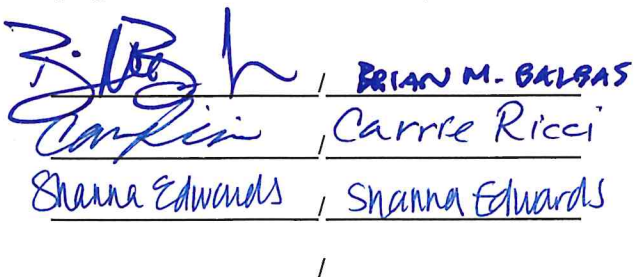 / BRIAN M. BALBAS
/ Carrie Ricci
Shanna Edwards / Shanna Edwards
/